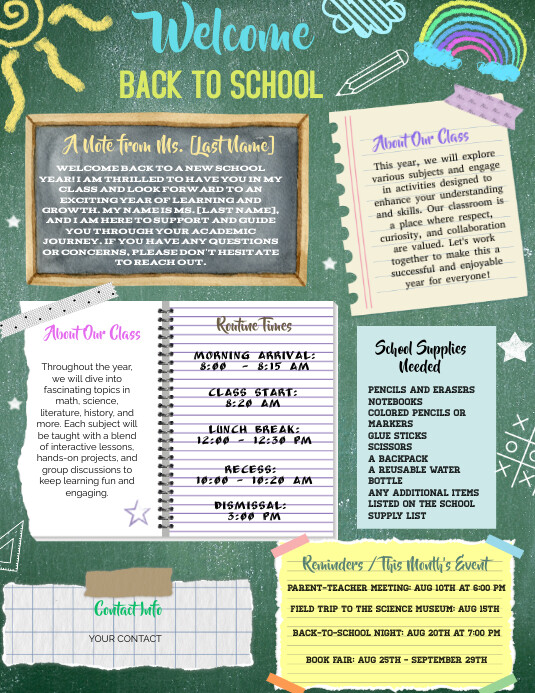 Welcome
BACK TO SCHOOL
A Note from Ms. [Last Name]
WELCOME BACK TO A NEW SCHOOL
YEAR! I AM THRILLED TO HAVE YOU IN MY
CLASS AND LOOK FORWARD TO AN
EXCITING YEAR OF LEARNING AND
GROWTH. MY NAME IS MS. [LAST NAME],
AND I AM HERE TO SUPPORT AND GUIDE
YOU THROUGH YOUR ACADEMIC
JOURNEY. IF YOU HAVE ANY QUESTIONS
OR CONCERNS, PLEASE DON'T HESITATE
TO REACH OUT.
About Our Class
This year, we will explore
various subjects and engage
in activities designed to
enhance your understanding
and skills. Our classroom is
a place where respect,
curiosity, and collaboration
are valued. Let's work
together to make this a
successful and enjoyable
year for everyone!
About Our Class
Throughout the year,
we will dive into
fascinating topics in
math, science,
literature, history, and
more. Each subject will
be taught with a blend
of interactive lessons,
hands-on projects, and
group discussions to
keep learning fun and
engaging.
Routine Times
MORNING ARRIVAL:
8:00 - 8:15 AM
CLASS START:
8:20 AM
LUNCH BREAK:
12:00 - 12:30 PM
RECESS:
10:00 - 10:20 AM
DISMISSAL:
3:00 PM
School Supplies
Needed
PENCILS AND ERASERS
NOTEBOOKS
COLORED PENCILS OR
MARKERS
GLUE STICKS
SCISSORS
A BACKPACK
A REUSABLE WATER
BOTTLE
ANY ADDITIONAL ITEMS
LISTED ON THE SCHOOL
SUPPLY LIST
Contact Info
YOUR CONTACT
Reminders / This Month's Event
PARENT-TEACHER MEETING: AUG 10TH AT 6:00 PM
FIELD TRIP TO THE SCIENCE MUSEUM: AUG 15TH
BACK-TO-SCHOOL NIGHT: AUG 20TH AT 7:00 PM
BOOK FAIR: AUG 25TH - SEPTEMBER 29TH